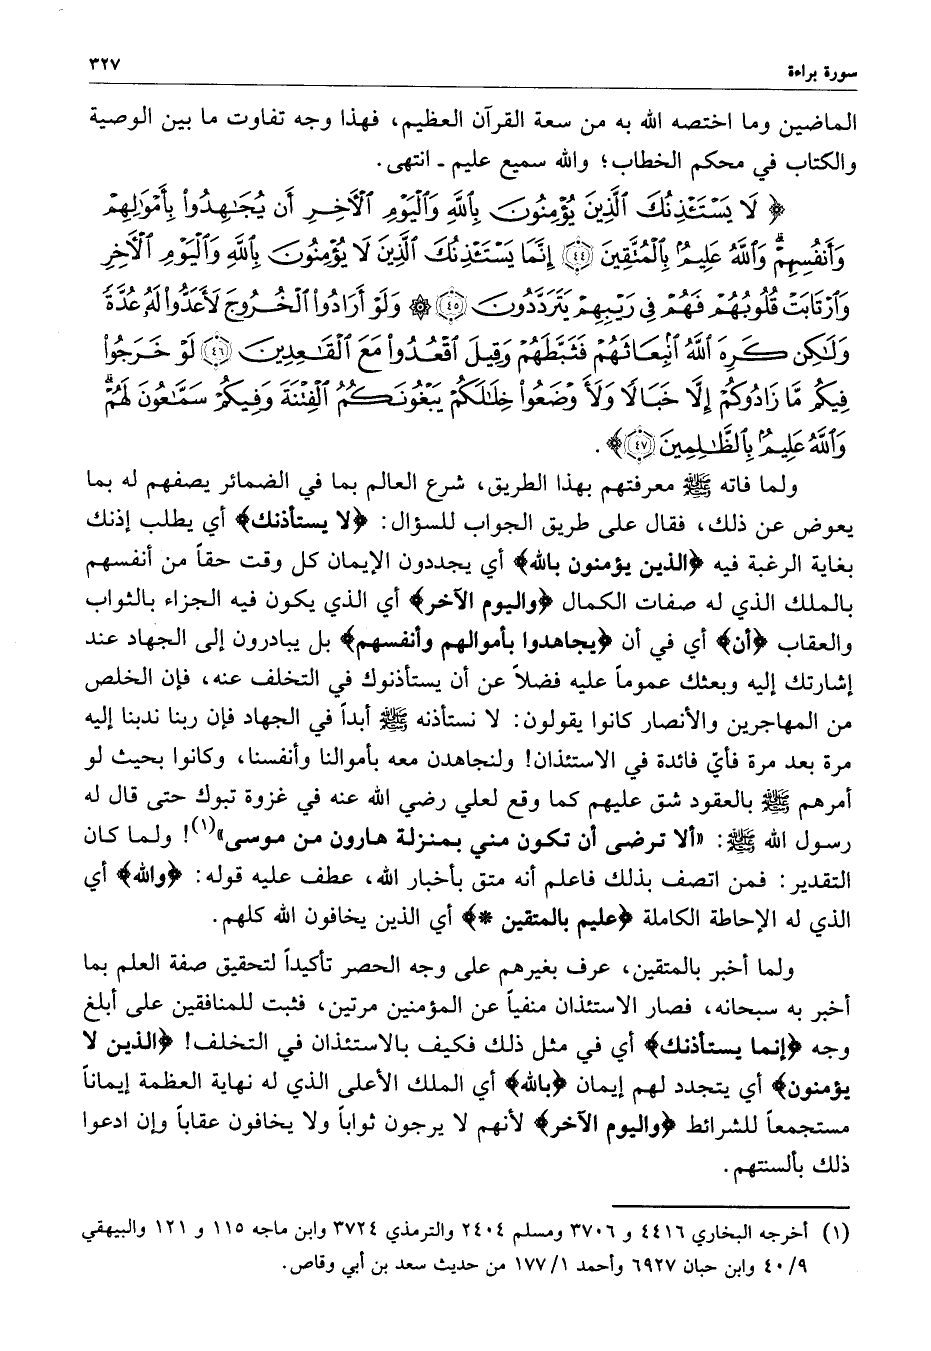 سورة براءة ٣٢٧
الماضين وما اختصه الله به من سعة القرآن العظيم، فهذا وجه تفاوت ما بين الوصية
والكتاب في محكم الخطاب؛ والله سميع عليم ـ انتهى.
﴿ لَا يَسْتَـْٔذِنُكَ ٱلَّذِينَ يُؤْمِنُونَ بِٱللَّهِ وَٱلْيَوْمِ ٱلْأَخِرِ أَن يُجَـٰهِدُوا۟ بِأَمْوَٰلِهِمْ
وَأَنفُسِهِمْ ۗ وَٱللَّهُ عَلِيمٌۢ بِٱلْمُتَّقِينَ ﴿٤٤﴾ إِنَّمَا يَسْتَـْٔذِنُكَ ٱلَّذِينَ لَا يُؤْمِنُونَ بِٱللَّهِ وَٱلْيَوْمِ ٱلْأَخِرِ
وَٱرْتَابَتْ قُلُوبُهُمْ فَهُمْ فِى رَيْبِهِمْ يَتَرَدَّدُونَ ﴿٤٥﴾ ۞ وَلَوْ أَرَادُوا۟ ٱلْخُرُوجَ لَأَعَدُّوا۟ لَهُۥ عُدَّةً
وَلَـٰكِن كَرِهَ ٱللَّهُ ٱنۢبِعَاثَهُمْ فَثَبَّطَهُمْ وَقِيلَ ٱقْعُدُوا۟ مَعَ ٱلْقَـٰعِدِينَ ﴿٤٦﴾ لَوْ خَرَجُوا۟
فِيكُم مَّا زَادُوكُمْ إِلَّا خَبَالًا وَلَأَوْضَعُوا۟ خِلَـٰلَكُمْ يَبْغُونَكُمُ ٱلْفِتْنَةَ وَفِيكُمْ سَمَّـٰعُونَ لَهُمْ ۗ
وَٱللَّهُ عَلِيمٌۢ بِٱلظَّـٰلِمِينَ ﴿٤٧﴾﴾.
ولما فاته ﷺ معرفتهم بهذا الطريق، شرع العالم بما في الضمائر يصفهم له بما
يعوض عن ذلك، فقال على طريق الجواب للسؤال: ﴿لا يستأذنك﴾ أي يطلب إذنك
بغاية الرغبة فيه ﴿الذين يؤمنون بالله﴾ أي يجددون الإيمان كل وقت حقاً من أنفسهم
بالملك الذي له صفات الكمال ﴿واليوم الآخر﴾ أي الذي يكون فيه الجزاء بالثواب
والعقاب ﴿أن﴾ أي في أن ﴿يجاهدوا بأموالهم وأنفسهم﴾ بل يبادرون إلى الجهاد عند
إشارتك إليه وبعثك عموماً عليه فضلاً عن أن يستأذنوك في التخلف عنه، فإن الخلص
من المهاجرين والأنصار كانوا يقولون: لا نستأذنه ﷺ أبداً في الجهاد فإن ربنا ندبنا إليه
مرة بعد مرة فأيّ فائدة في الاستئذان! ولنجاهدن معه بأموالنا وأنفسنا، وكانوا بحيث لو
أمرهم ﷺ بالعقود شق عليهم كما وقع لعلي رضي الله عنه في غزوة تبوك حتى قال له
رسول الله ﷺ: «ألا ترضى أن تكون مني بمنزلة هارون من موسى»(١)! ولما كان
التقدير: فمن اتصف بذلك فاعلم أنه متق بأخبار الله، عطف عليه قوله: ﴿والله﴾ أي
الذي له الإحاطة الكاملة ﴿عليم بالمتقين *﴾ أي الذين يخافون الله كلهم.
ولما أخبر بالمتقين، عرف بغيرهم على وجه الحصر تأكيداً لتحقيق صفة العلم بما
أخبر به سبحانه، فصار الاستئذان منفياً عن المؤمنين مرتين، فثبت للمنافقين على أبلغ
وجه ﴿إنما يستأذنك﴾ أي في مثل ذلك فكيف بالاستئذان في التخلف! ﴿الذين لا
يؤمنون﴾ أي يتجدد لهم إيمان ﴿بالله﴾ أي الملك الأعلى الذي له نهاية العظمة إيماناً
مستجمعاً للشرائط ﴿واليوم الآخر﴾ لأنهم لا يرجون ثواباً ولا يخافون عقاباً وإن ادعوا
ذلك بألسنتهم.
(١) أخرجه البخاري ٤٤١٦ و ٣٧٠٦ ومسلم ٢٤٠٤ والترمذي ٣٧٢٤ وابن ماجه ١١٥ و ١٢١ والبيهقي
٤٠/٩ وابن حبان ٦٩٢٧ وأحمد ١٧٧/١ من حديث سعد بن أبي وقاص.